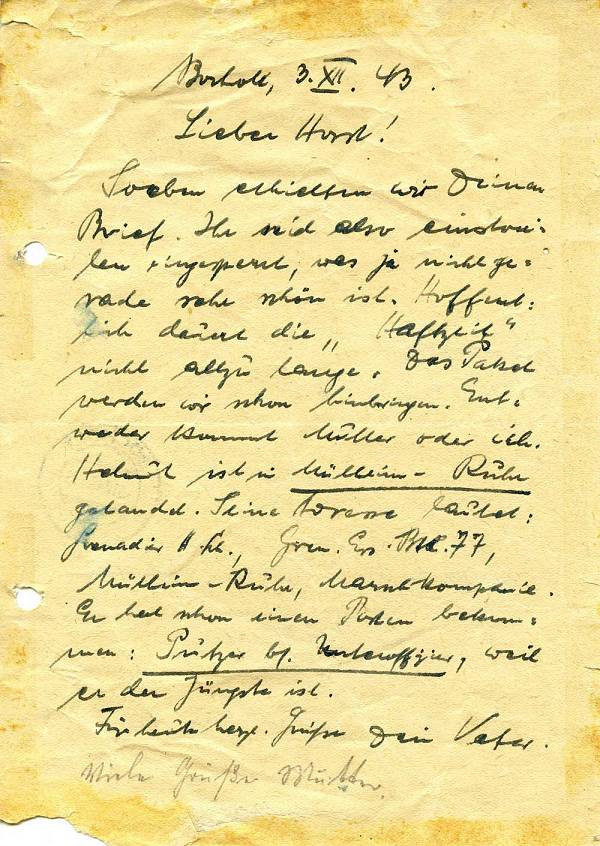 Bocholt, 3. XII. 43.
Lieber Horst!
Soeben erhielten wir Deinen
Brief. Ihr seid also einstwei-
len eingesperrt, was ja nicht ge-
rade sehr schön ist. Hoffent-
lich dauert die „Haftzeit"
nicht allzu lange. Das Paket
werden wir schon hinbringen. Ent-
weder kommt Mutter oder ich.
Helmut ist in Mülheim-Ruhr
gelandet. Seine Adresse lautet:
Grenadier H. Sch., Gren. Ers. Btl. 77,
Mülheim-Ruhr, Marschkompanie.
Er hat schon einen Posten bekom-
men: Putzer bf. Unteroffizier, weil
er der Jüngste ist.
Für heute herzl. Grüße Dein Vater.
Viele Grüße Mutter.